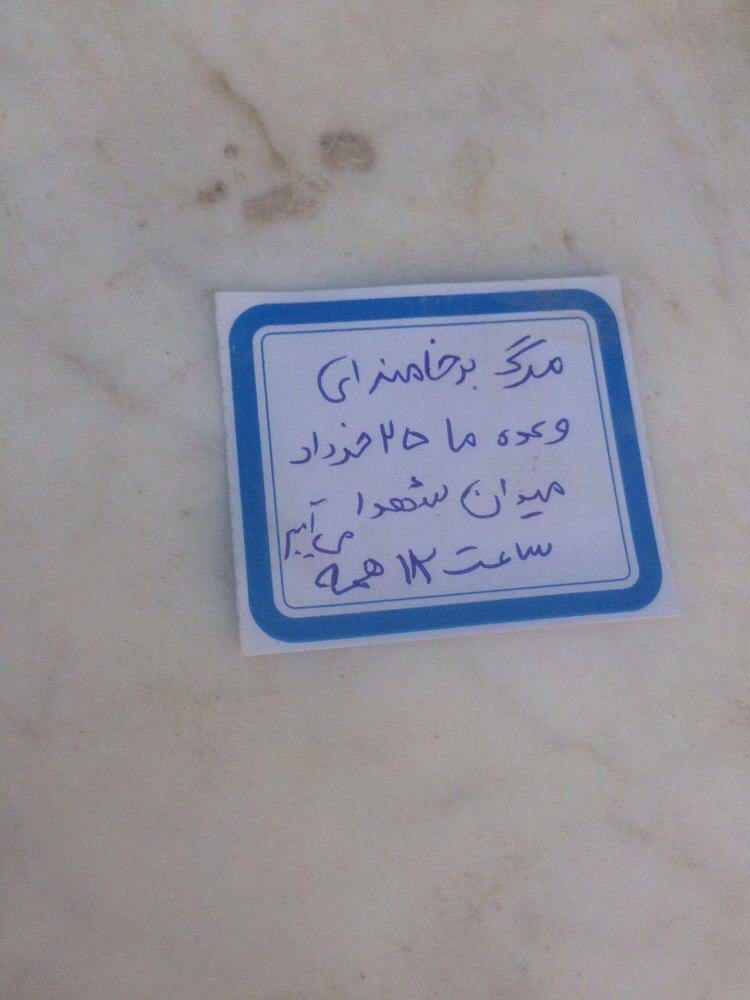 مرگ بر خامنه ای
وعده ما ۲۵ خرداد
میدان شهدا
ساعت ۱۸ همه
می آییم